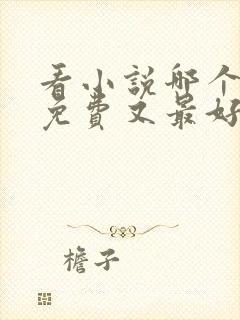 看小説哪个
免費又最好
檐子